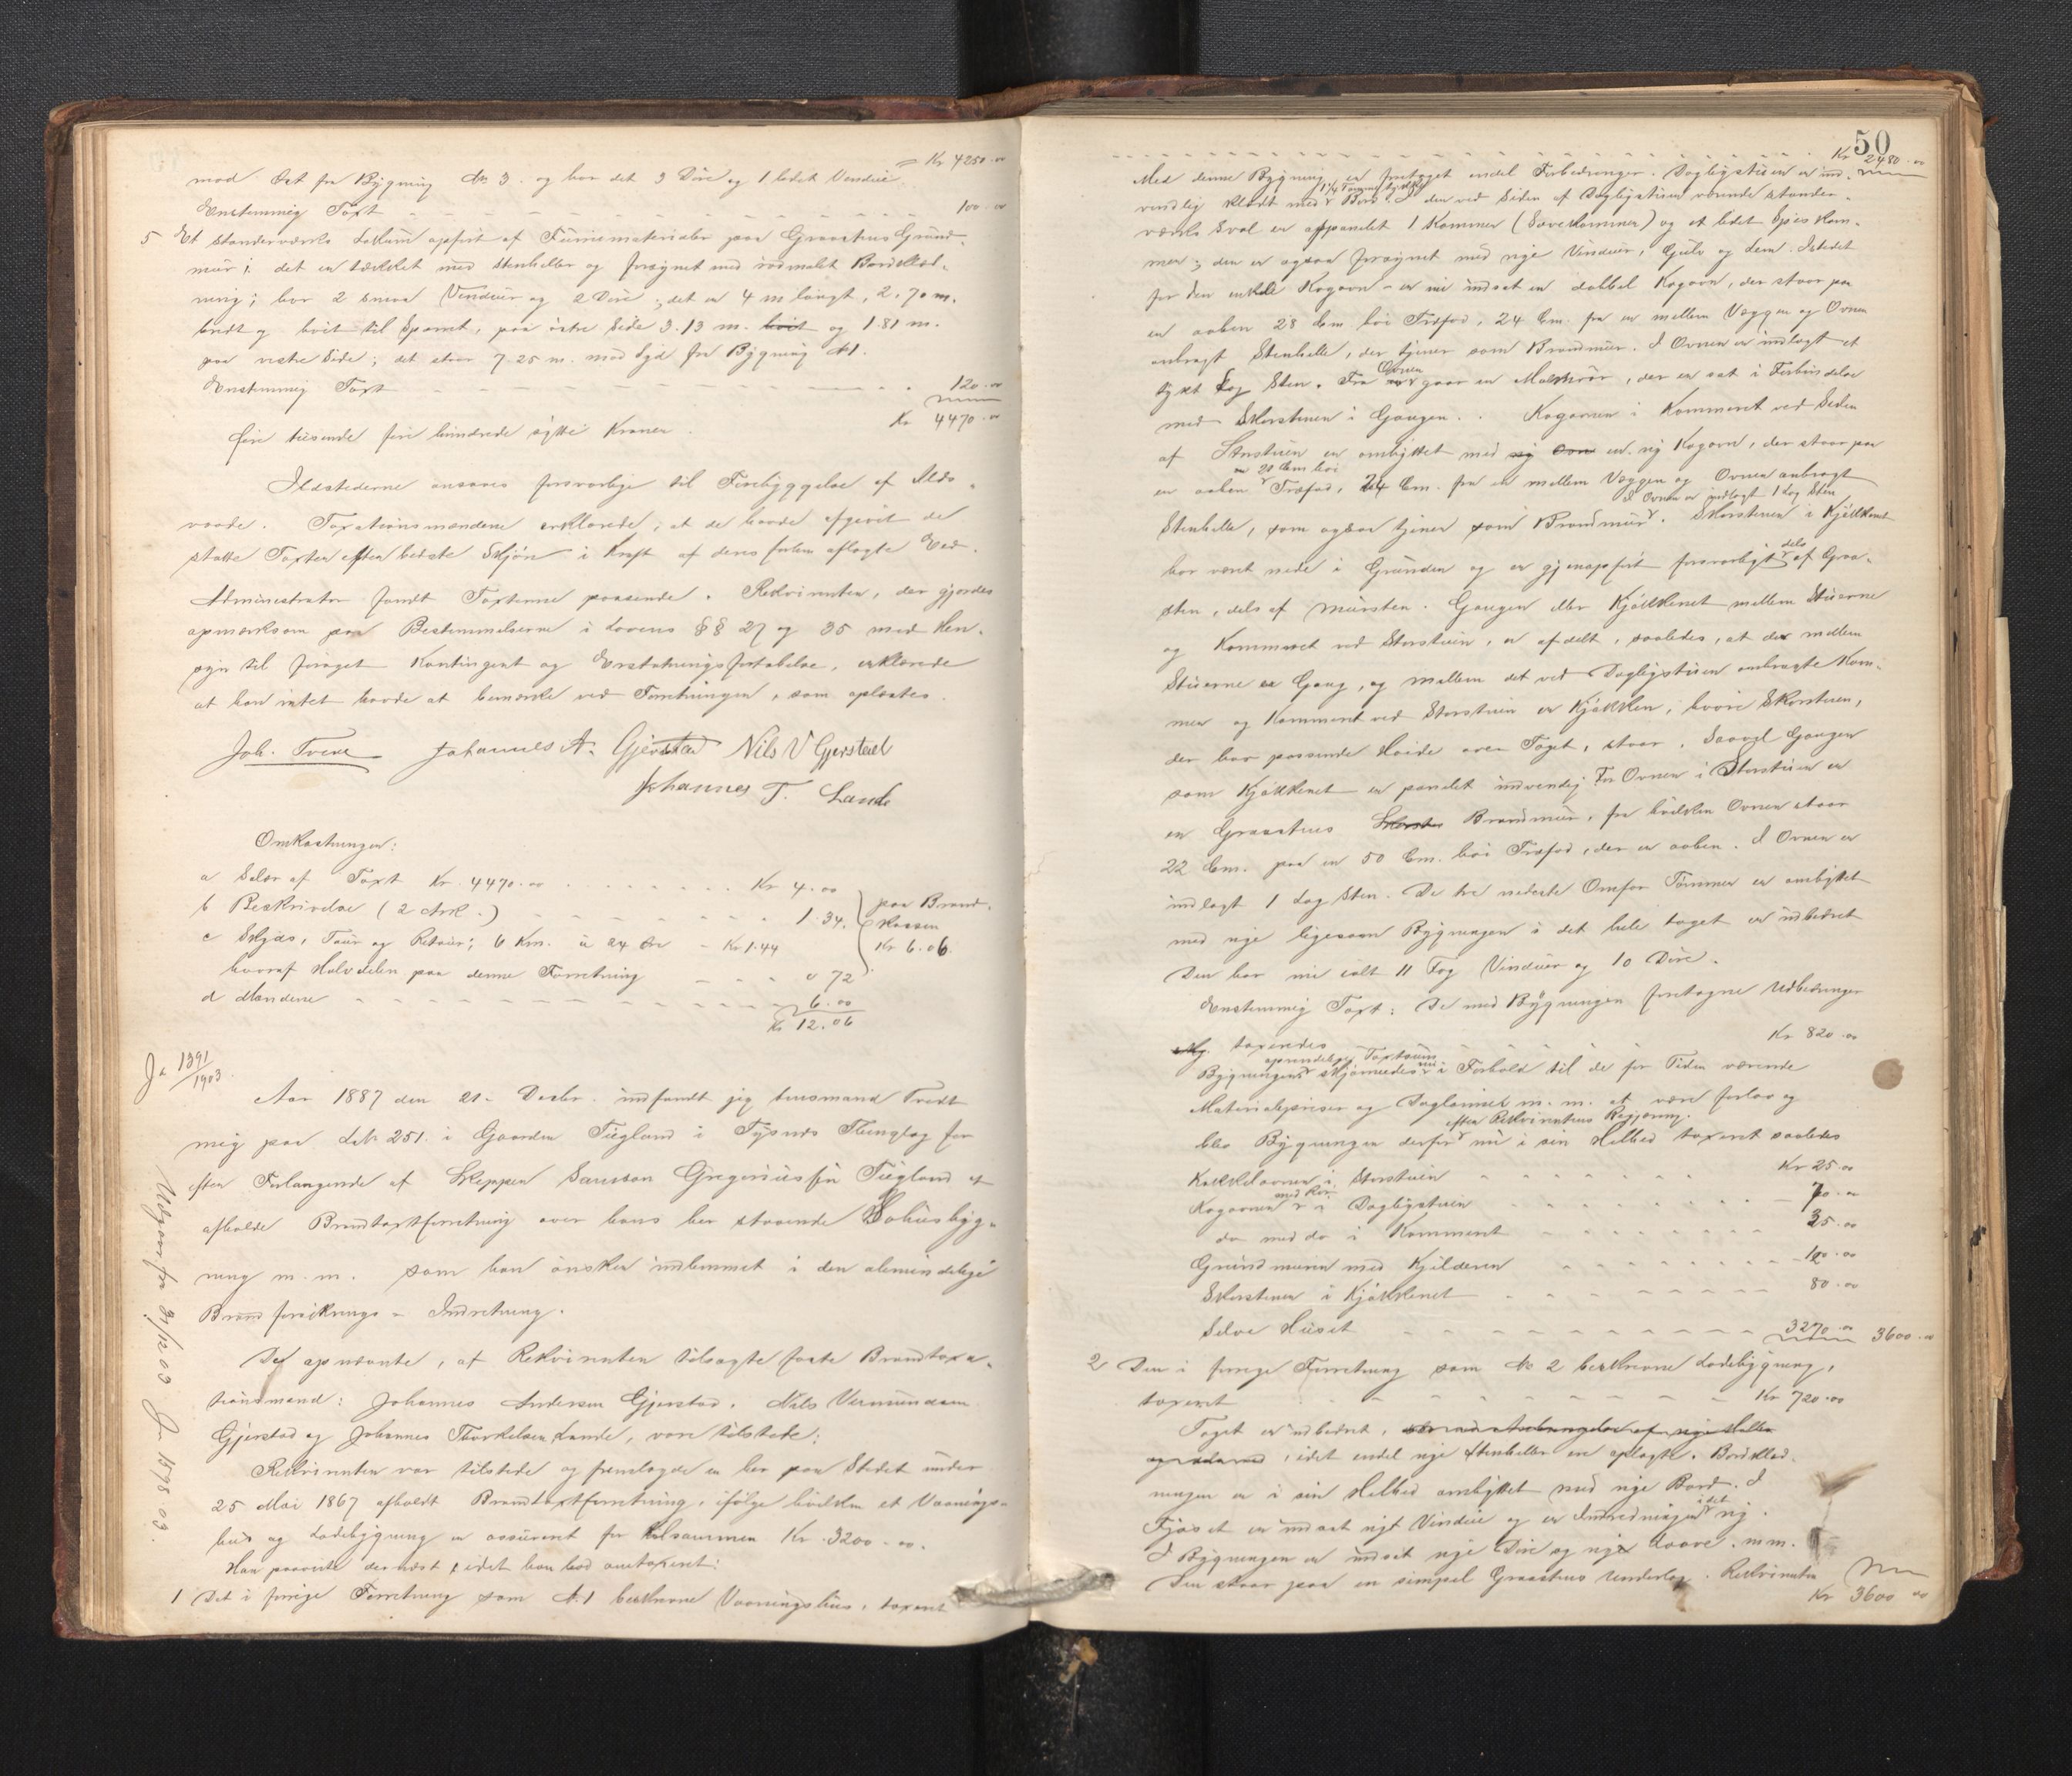 = Kr 4250.00
mod Öst fra Bygning № 3. og har det 3 Döre og 1 lidet Vindue.
Enstemmig Taxt 100.00
5 Et Standerværks Lokum opført af Furumateriale paa Graastens Grund-
mur; det er tækket med Stenheller og forsynet med rødmalet Bordklæd-
ning; har 2 smaa Vinduer og 2 Döre; det er 4 m langt, 2.70 m.
bredt og höit til Sparret, paa östre Side 3.13 m. og 1.81 m.
paa vestre Side; det staar 7.25 m. mod Syd fra Bygning № 1.
Enstemmig Taxt 120.00
Kr 4470.00
fire tusende fire hundrede sytti Kroner.
Ildstederne ansaaes forsvarlige til Forebyggelse af Ilds-
vaade. Taxationsmændene erklærede, at de havde afgivet de
satte Taxter efter bedste Skjön i Kraft af deres forhen aflagte Eed.
Administrator fandt Taxterne passende. Rekvirenten, der gjordes
opmærksom paa Bestemmelserne i Lovens §§ 27 og 35 med Hen-
syn til foröget Kontingent og Erstatnings fortabelse, erklærede
at han intet havde at bemærke ved Forretningen, som oplæstes.
Joh. Tveit Johannes A. Gjerstad Nils V Gjerstad
Johannes T. Lande
Omkostninger:
a Salær af Taxt Kr. 4470.00 Kr 4.00
b Beskrivelse (2 Ark.) 1.34.
paa Brand-
kassen
Kr 6.06
c Skyds, Tour og Retour; 6 Km. á 24 Öre - Kr 1.44
hvoraf Halvdelen paa denne Forretning 0 72
d Mændene 6.00
Kr 12.06
Jr 1391/1903.
Aar 1887 den 21. Decbr. indfandt jeg Lensmand Tveit
mig paa Lök 251. i Gaarden Tegland i Tysnes Thinglag for
efter Forlangende af Skipper Samson Gregoriussön Tegland at
afholde Brandtaxtforretning over hans her staaende Vohusbyg-
ning m.m. som han önsker indlemmet i den almindelige
Brandforsikrings-Indretning.
De opnævnte, af Rekvirenten tilsagte faste Brandtaxa-
tionsmænd: Johannes Andersen Gjerstad, Nils Vermundsen
Gjerstad og Johannes Thorkelsen Lande, vare tilstede.
Rekvirenten var tilstede og fremlagde en her paa Stedet under
25 Mai 1867 afholdt Brandtaxtforretning, ifölge hvilken et Vaanings-
hus og Ladebygning er assureret for tilsammen Kr. 3200.00.
Han paaviste dernæst, idet han bad omtaxeret:
1 Det i forrige Forretning som № 1 beskrevne Vaaningshus, taxeret
Udgaar fra 31/12 03 Jr 1578 03.
50
Kr 2480.00
Med denne Bygning er foretaget endel Forbedringer. Dagligstuen er ind-
vendig klædt med 1¼ Tommes tykke Bord. I den ved Siden af Dagligstuen værende stander-
værks Sval er afpanelet 1 Kammer (Sovekammer) og et lidet Spiskam-
mer; den er ogsaa forsynet med nye Vinduer, Gulv og Lem. Istedet
for den enkelte Kogovn er nu indsat en dobbel Kogovn, der staar paa
en aaben 28 Cm. höi Træfod, 24 Cm. fra en mellem Væggen og Ovnen
anbragt Stenhelle, der tjener som Brandmur. I Ovnen er indlagt et
tykt Lag Sten. Fra Ovnen gaar en Malmrör, der er sat i Forbindelse
med Skorstenen i Gangen. Kogovnen i Kammeret ved Siden
af Storstuen er ombyttet med en ny Kogovn, der staar paa
en aaben 20 Cm höi Træfod, 24 Cm. fra en mellem Væggen og Ovnen anbragt
Stenhelle, som ogsaa tjener som Brandmur. I Ovnen er indlagt 1 Lag Sten. Skorstenen i Kjökkenet
har været nede i Grunden og er gjenopført forsvarligt dels af Graa-
sten, dels af Mursten. Gangen eller Kjökkenet mellem Stuerne
og Kammeret ved Storstuen, er afdelt, saaledes, at der mellem
Stuerne er Gang, og mellem det ved Dagligstuen anbragte Kam-
mer og Kammeret ved Storstuen er Kjökken, hvori Skorstenen,
der har passende Höide over Taget, staar. Saavel Gangen
som Kjökkenet er panelet indvendig. For Ovnen i Storstuen er
en Graastens Brandmur, fra hvilken Ovnen staar
22 Cm. paa en 50 Cm. höi Træfod, der er aaben. I Ovnen er
indlagt 1 Lag Sten. De tre nederste Omfar Tömmer er ombyttet
med nye ligesom Bygningen i det hele taget er udbedret
Den har nu ialt 11 Fag Vinduer og 10 Döre.
Enstemmig Taxt: De med Bygningen foretagne Udbedringer
taxeredes Kr 820.00
Bygningens oprindelige Taxtsum skjönnedes nu i Forhold til de for Tiden værende
Materialpriser og Daglönne m.m. at være for lav og
blev Bygningen derfor efter Rekvirentens Begjæring nu i sin Helhed taxeret saaledes
Kakkelovnen i Storstuen Kr 25.00
Kogovnen med Rör i Dagligstuen 70.00
do med do i Kammeret 35.00
Grundmuren med Kjelderen 120.00
Skorstenen i Kjökkenet 80.00
Selve Huset 3270.00 3600.00
2 Den i forrige Forretning som № 2 beskrevne Ladebygning,
taxeret Kr 720.00
Taget er udbedret,
idet endel nye Stenheller er oplagte. Bordklæd-
ningen er i sin Helhed ombyttet med nye Bord. I
Fjöset er indsat nyt Vindue og er Indredningen i det ny.
I Bygningen er indsat nye Döre og nye Laave. m.m.
Den staar paa en simpel Graastens Underlag. Rekvirenten
Kr 3600 00